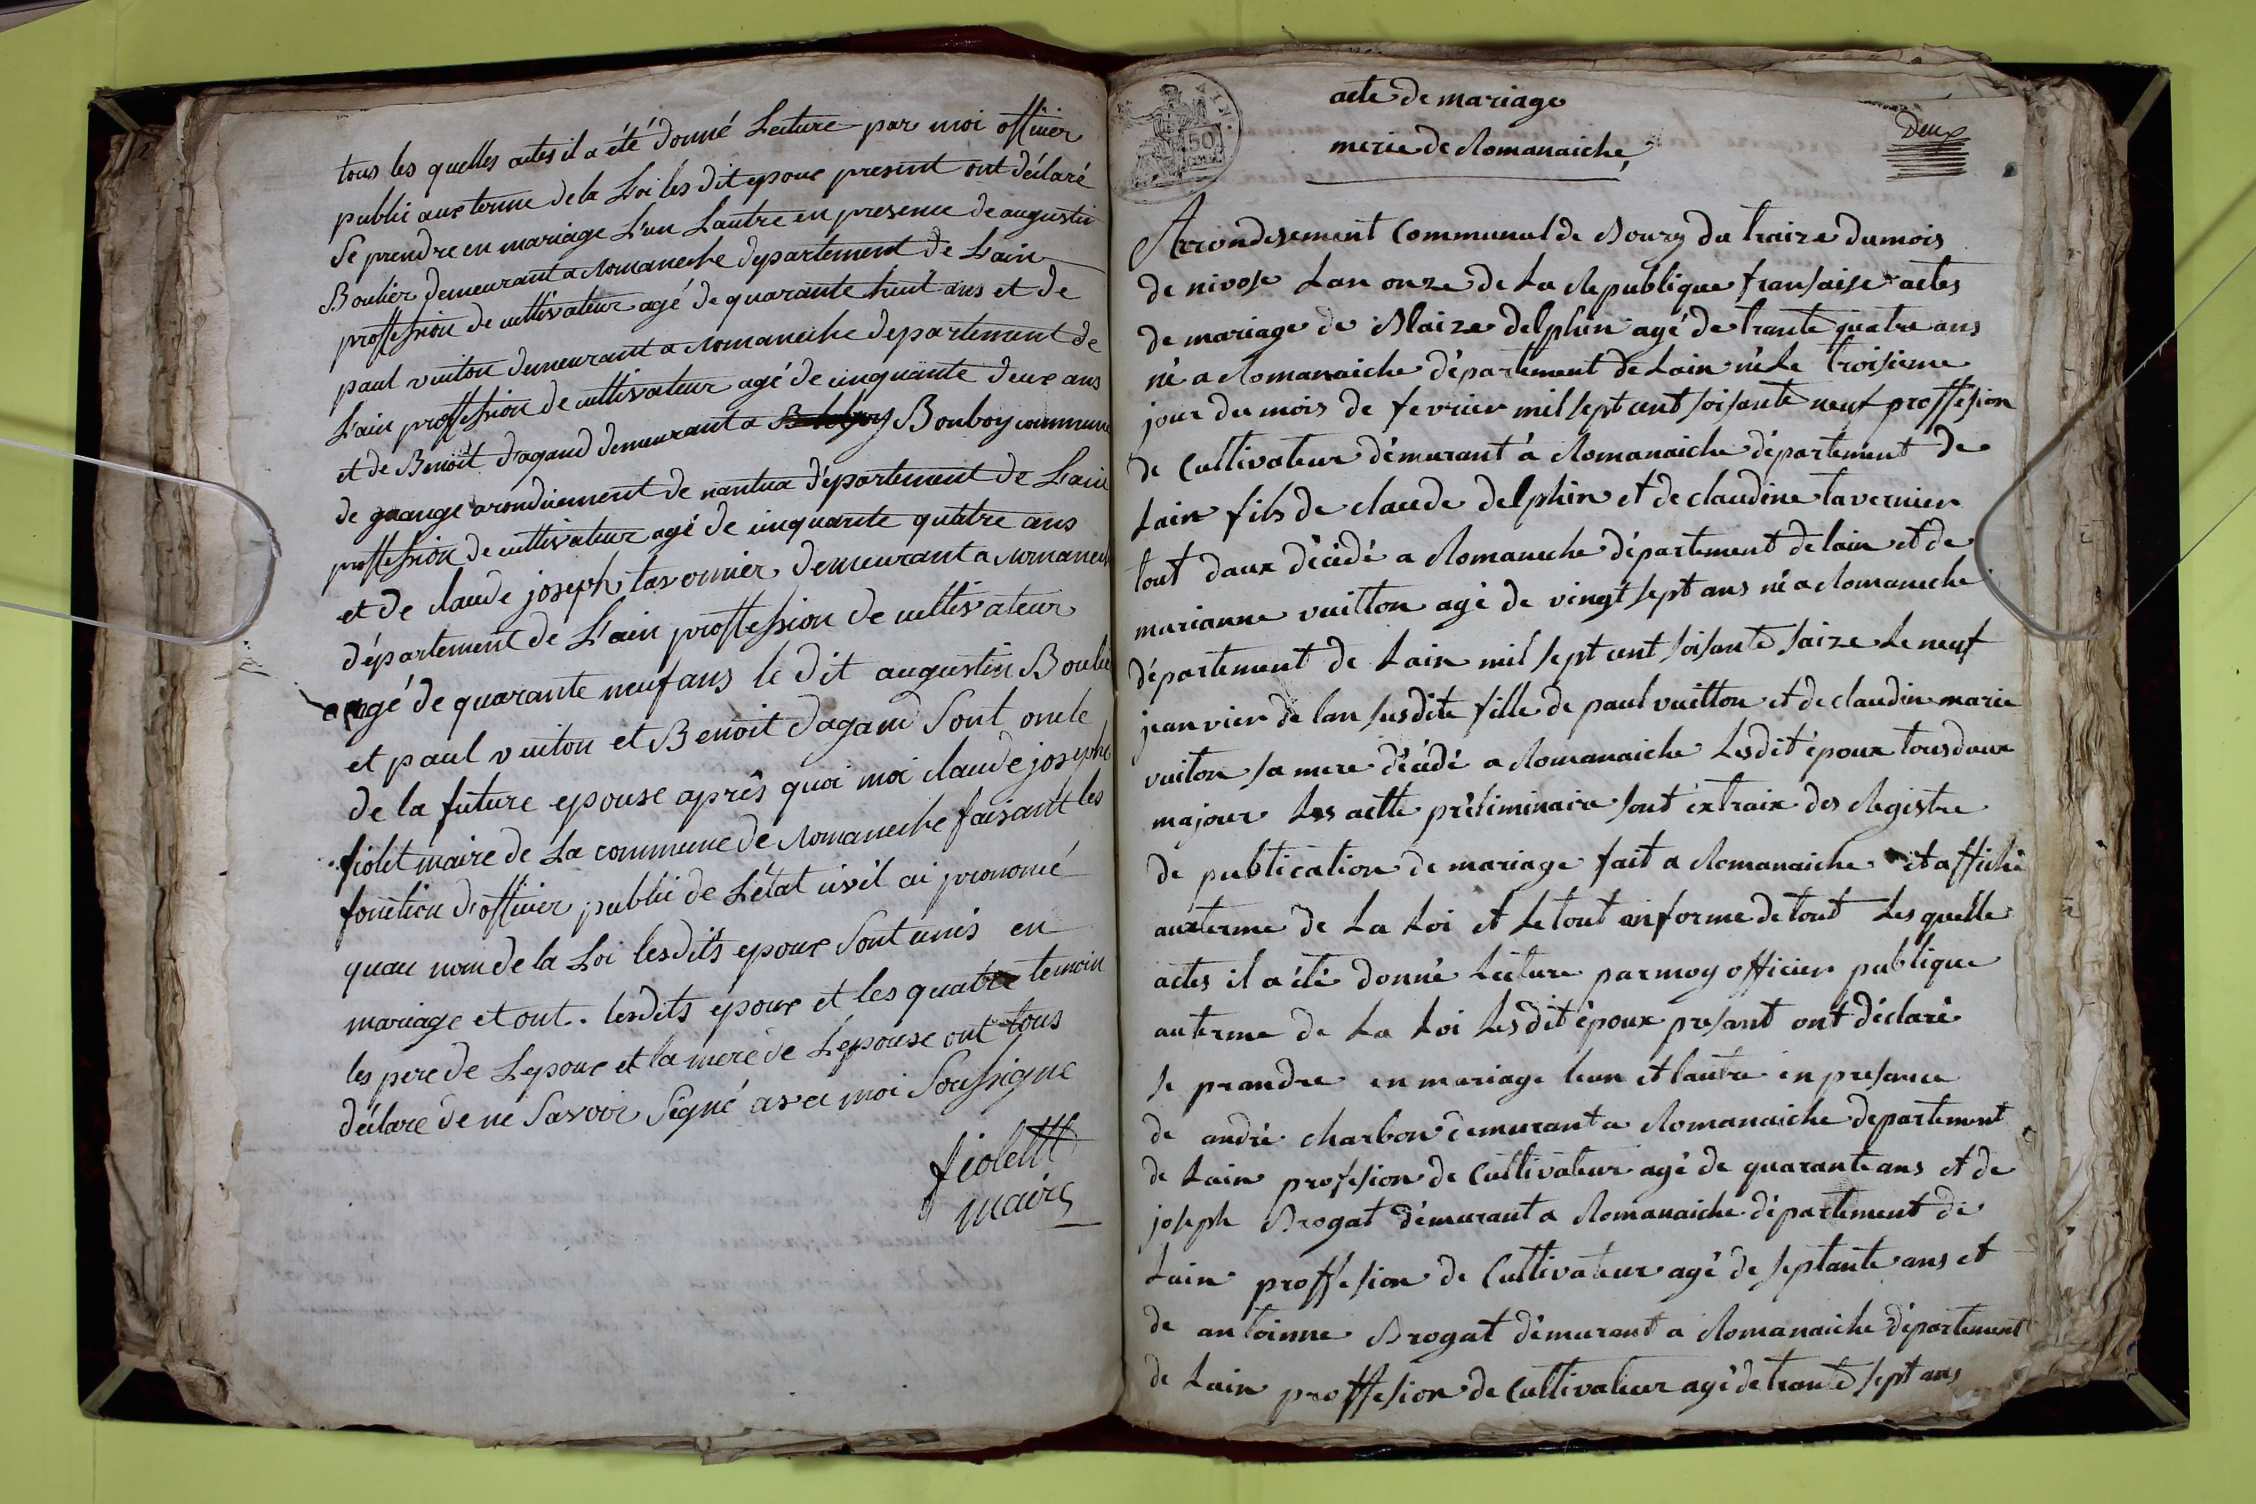 tous les quelles actes il a été donné Lecture par moi officier
public aux terme de la Loi les dit epoux present ont déclaré
se prendre en mariage L'un Lautre en presence de augustin
Boulier demeurant a Romaneche departement de Lain
proffession de cultivateur agé de quarante huit ans et de
paul vuiton demeurant a Romaneche departement de
L'ain proffession de cultivateur agé de cinquante deux ans
et de Benoit dagand demeurant a Bouboy commune
de grange arondicement de nantua departement de L'ain
proffession de cultivateur agé de cinquante quatre ans
et de claude joseph tavernier demeurant a Romanech
département de L'ain proffession de cultivateur
agé de quarante neuf ans le dit augustin Boulie
et paul vuiton et Benoit dagand sont oncle
de la future epouse après quoi moi claude joseph
fiolet maire de La commune de Romaneche faisant les
fonction d'officier public de L'état civil ai prononcé
quau nom de la Loi lesdits epoux sont unis en
mariage et ont. lesdits epoux et les quatre temoin
les pere de Lepoux et la mere de Lepouse ont tous
déclare de ne savoir signé avec moi soussigne
fiolett
maire
50
acte de mariage
merie de Romanaiche
Deux
Arrondissement Communal de Bourg du traize du mois
de nivose Lan onze de La Republique fransaise actes
de mariage de Blaize delphin agé de trante quatre ans
né a Romanaiche département de Lain né Le troisieme
jour du mois de fevrier mil sept cent soisante neuf proffesion
de Cultivateur démurant à Romanaiche département de
Lain fils de claude delphin et de claudine tavernier
tout daux décédé a Romaneche département de lain et de
marianne vuitton agé de vingt sept ans né a Romaneche
département de Lain mil sept cent soisante saize Le neuf
jeanvier de lan susdite fille de paul vuitton et de claudine marie
vuiton sa mere décédé a Romanaiche Lesdit époux tous daux
majour Les actte préliminaire sont extraix des Registre
de publication de mariage fait a Romanaiche et affiché
aux terme de La Loi et Le tout en forme de tout Les quelle
actes il a été donné Lecture par moy officier publique
au terme de La Loi Les dit époux presant ont déclaré
se prandre en mariage leun et lautre en presance
de andré charbon demurant a Romanaiche departement
de Lain profesion de Cultivateur agé de quarante ans et de
joseph Brogat démurant a Romanaiche département de
Lain proffesion de Cultivateur agé de septante ans et
de antoinne Brogat démurant a Romanaiche département
de Lain proffesion de Cultivateur agé de trante sept ans